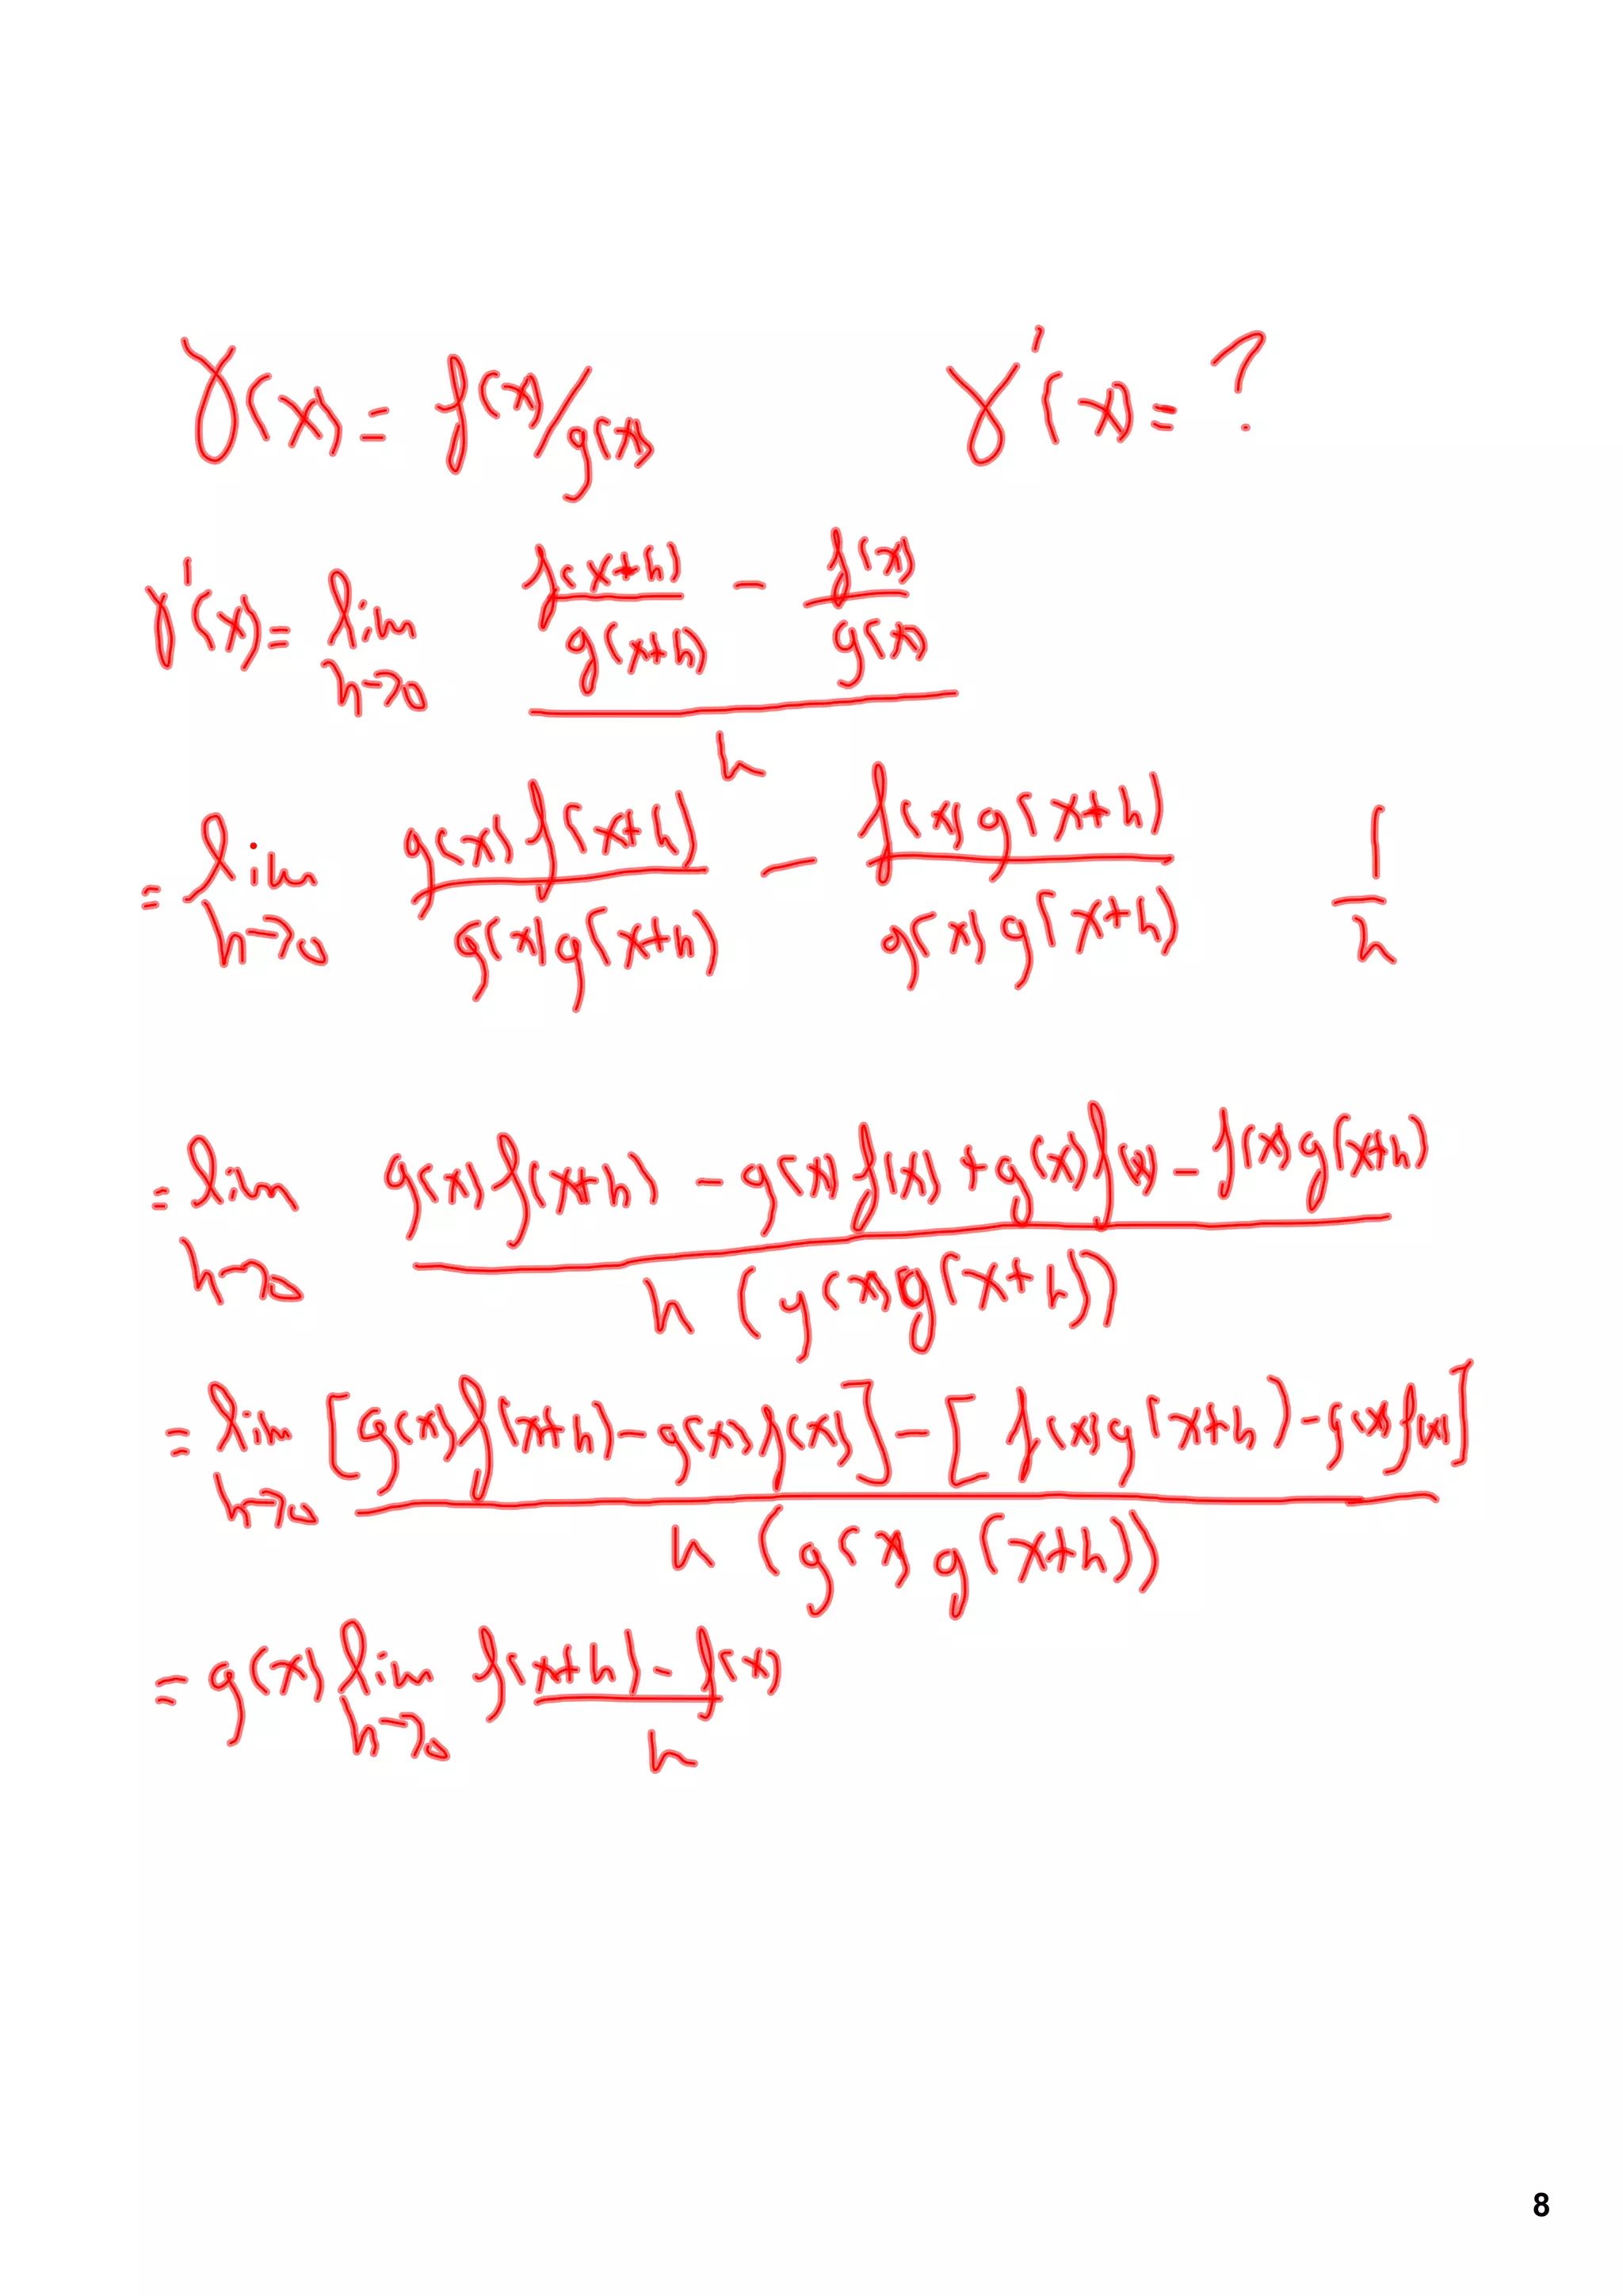 γ(x) = f(x)/g(x) γ'(x) = ?
γ'(x) = lim h→0 (f(x+h)/g(x+h) - f(x)/g(x)) / h
= lim h→0 g(x)f(x+h)/g(x)g(x+h) - f(x)g(x+h)/g(x)g(x+h) 1/h
= lim h→0 (g(x)f(x+h) - g(x)f(x) + g(x)f(x) - f(x)g(x+h)) / h(g(x)g(x+h))
= lim h→0 ([g(x)f(x+h) - g(x)f(x)] - [f(x)g(x+h) - g(x)f(x)]) / h(g(x)g(x+h))
= g(x) lim h→0 (f(x+h) - f(x)) / h
8